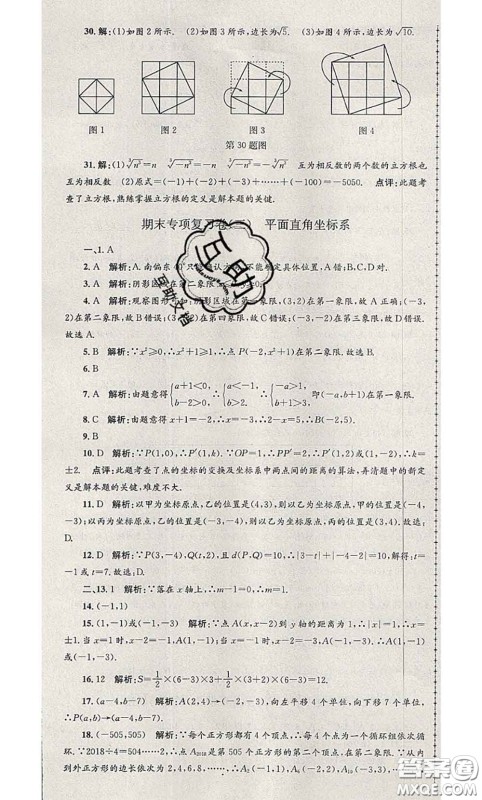 30. 解:(1)如图 2 所示. (2)如图 3 所示,边长为√5. (3)如图 4 所示,边长为√10.
图 1 图 2 图 3 图 4
第 30 题图
31. 解:(1)∛n³=n ∛-n³=-n ∛-n³=-∛n³ 互为相反数的两个数的立方根也
互为相反数 (2)原式=(-1)+(-2)+(-3)+……+(-100)=-5050. 点评:此题考
查了立方根,熟练掌握立方根的定义是解本题的关键.
期末专项复习卷 平面直角坐标系
一、1. A
2. A 解析:A.南偏东 只 能确定具体位置,A 错;B、C、D对.
3. A 解析:阴影区 在第二象限
4. A 解析:观察图形可知:阴影区域在第一象限,(3,2)在第一象限,故 A 正确;(-3,
2)在第二象限,故 B 错误;(3,-2)在第四象限,故 C 错误;(-3,-2)在第三象限,故 D 错误.
5. B 解析:∵x²≥0,∴x²+1≥1,∴点 P(-2,x²+1)在第二象限.
6. B
7. A 解析:由题意得{a+1<0, b-2>0. ∴{a<-1, b>2. ∴即(-a,b+1)在第一象限.
8. C 解析:由题意得 x+1=-2,∴x=-3,∴2-x=5,∴B(-2,5).
9. B
10. D 解析:∵P(1,0),∴P′(1,k). ∵OP=1,∴PP′=2,∴P′(1,2)或(1,-2),∴k=
±2. 点评:此题考查了点的坐标的变换及坐标系中两点间的距离的算法,弄清题中的新定
义是解本题的关键,难度不大.
11. D 解析:以甲为坐标原点,乙的位置是(4,3),则以乙为坐标原点,甲的位置是(-4,
-3);以丙为坐标原点,乙的位置是(-3,-4),则以乙为坐标原点,丙的位置是(3,4).故选
D.
12. D 解析:∵P(3,-4),Q(t,2),且 d(P,Q)=10,∴|3-t|+|-4-2|=10,解得:t=
-1 或 t=7. 故选 D.
二、13. 1 解析:∵落在 x 轴上,∴m-1=0,∴m=1.
14. (-1,1)
15. (-1,-3)或(1,-1) 解析:∵点 A(x,x-2)到 y 轴的距离为 1,∴|x|=1,∴x=
±1. ∴当 x=1 时,x-2=-1,A(1,-1);当 x=-1 时,x-2=-3,A(-1,-3). ∴点 A(1,
-1)或(-1,-3).
16. 12 解析:S=1/2×(-6)×(-2)+1/2×(3+2)×6=12.
17. (a-4,b-7) 解析:A(2,4)→(-2,-3),向左平移 4 个单位,向下移 7 个单位,
∴P(a,b)→(a-4,b-7).
18. (-505,505) 解析:∵每个正方形都有 4 个顶点,∴每 4 个点为一个循环组依次循
环. ∵2018÷4=504……2,∴点 A₂₀₁₈是第 505 个正方形的第二个顶点,在第二象限. ∵从内
到外正方形的边长依次为 2,4,6,8,……,∴点 A₂(-1,1),A₆(-2,2),A₁₀(-3,3),
互助文档
答案圈
MXQE.COM